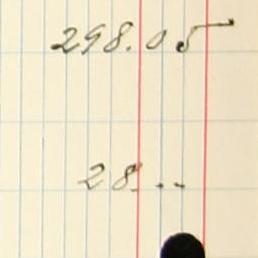 298.05
28...